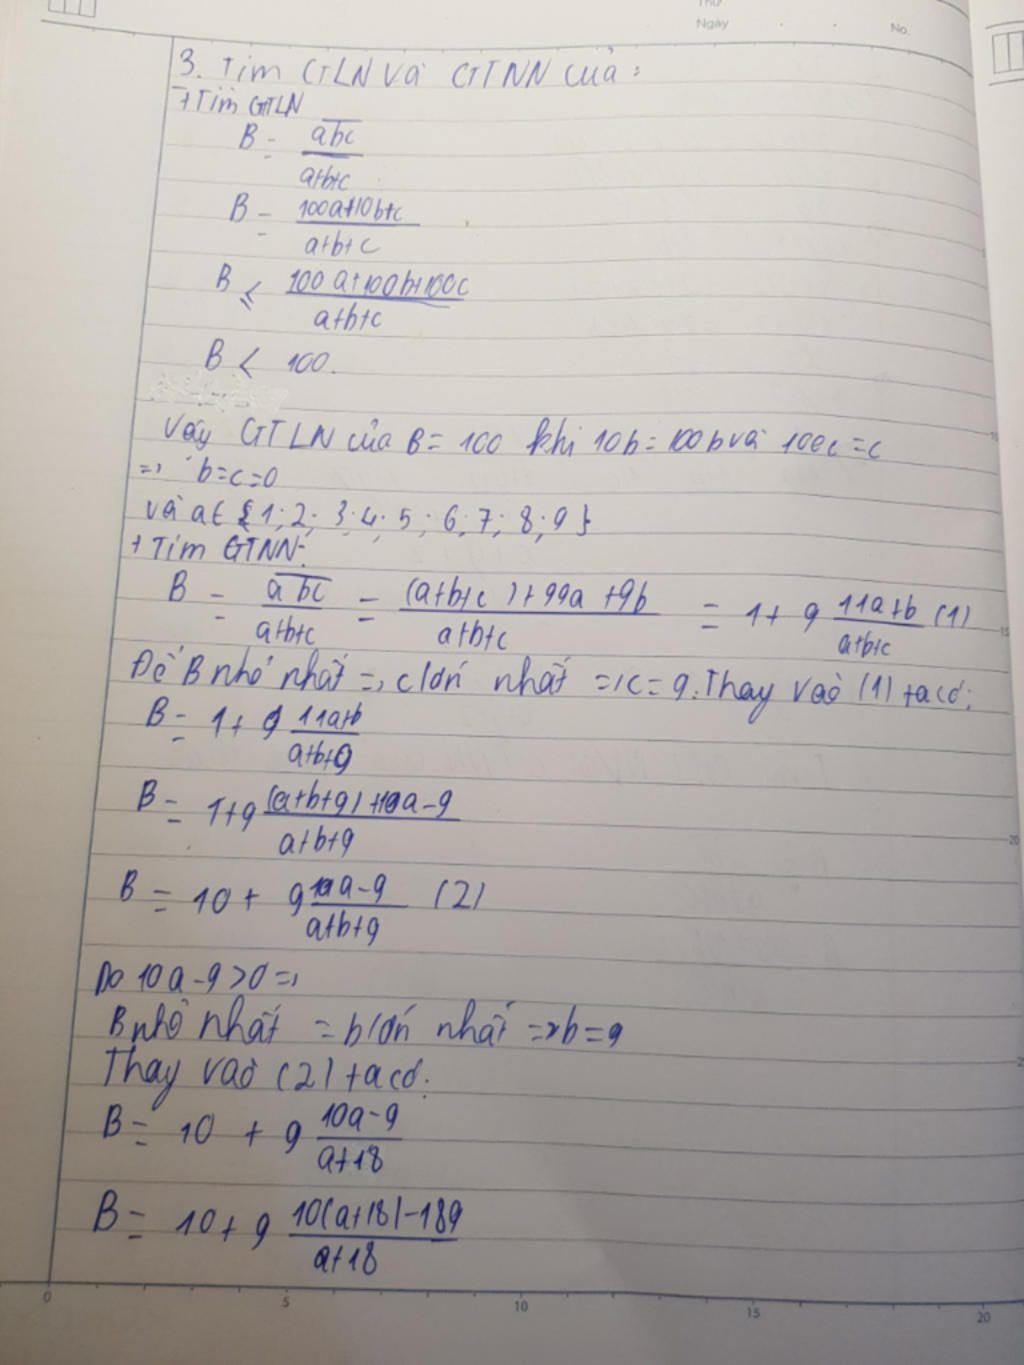 Thứ
Ngày . . No.
3. Tìm GTLN và GTNN của:
+ Tìm GTLN
B = \overline{abc} / a+b+c
B = 100a+10b+c / a+b+c
B ≤ 100a+100b+100c / a+b+c
B < 100.
Vậy GTLN của B = 100 khi 10b = 100b và 100c = c
=> b=c=0
và a ∈ {1; 2; 3; 4; 5; 6; 7; 8; 9}
+ Tìm GTNN:
B = \overline{abc} / a+b+c = (a+b+c)+99a+9b / a+b+c = 1 + 9 11a+b / a+b+c (1)
Để B nhỏ nhất => c lớn nhất => c = 9. Thay vào (1) ta có:
B = 1 + 9 11a+b / a+b+9
B = 1+9 (a+b+9)+10a-9 / a+b+9
B = 10 + 9 10a-9 / a+b+9 (2)
Do 10a-9>0 =>
B nhỏ nhất = b lớn nhất => b = 9
Thay vào (2) ta có:
B = 10 + 9 10a-9 / a+18
B = 10 + 9 10(a+18)-189 / a+18
0 5 10 15 20